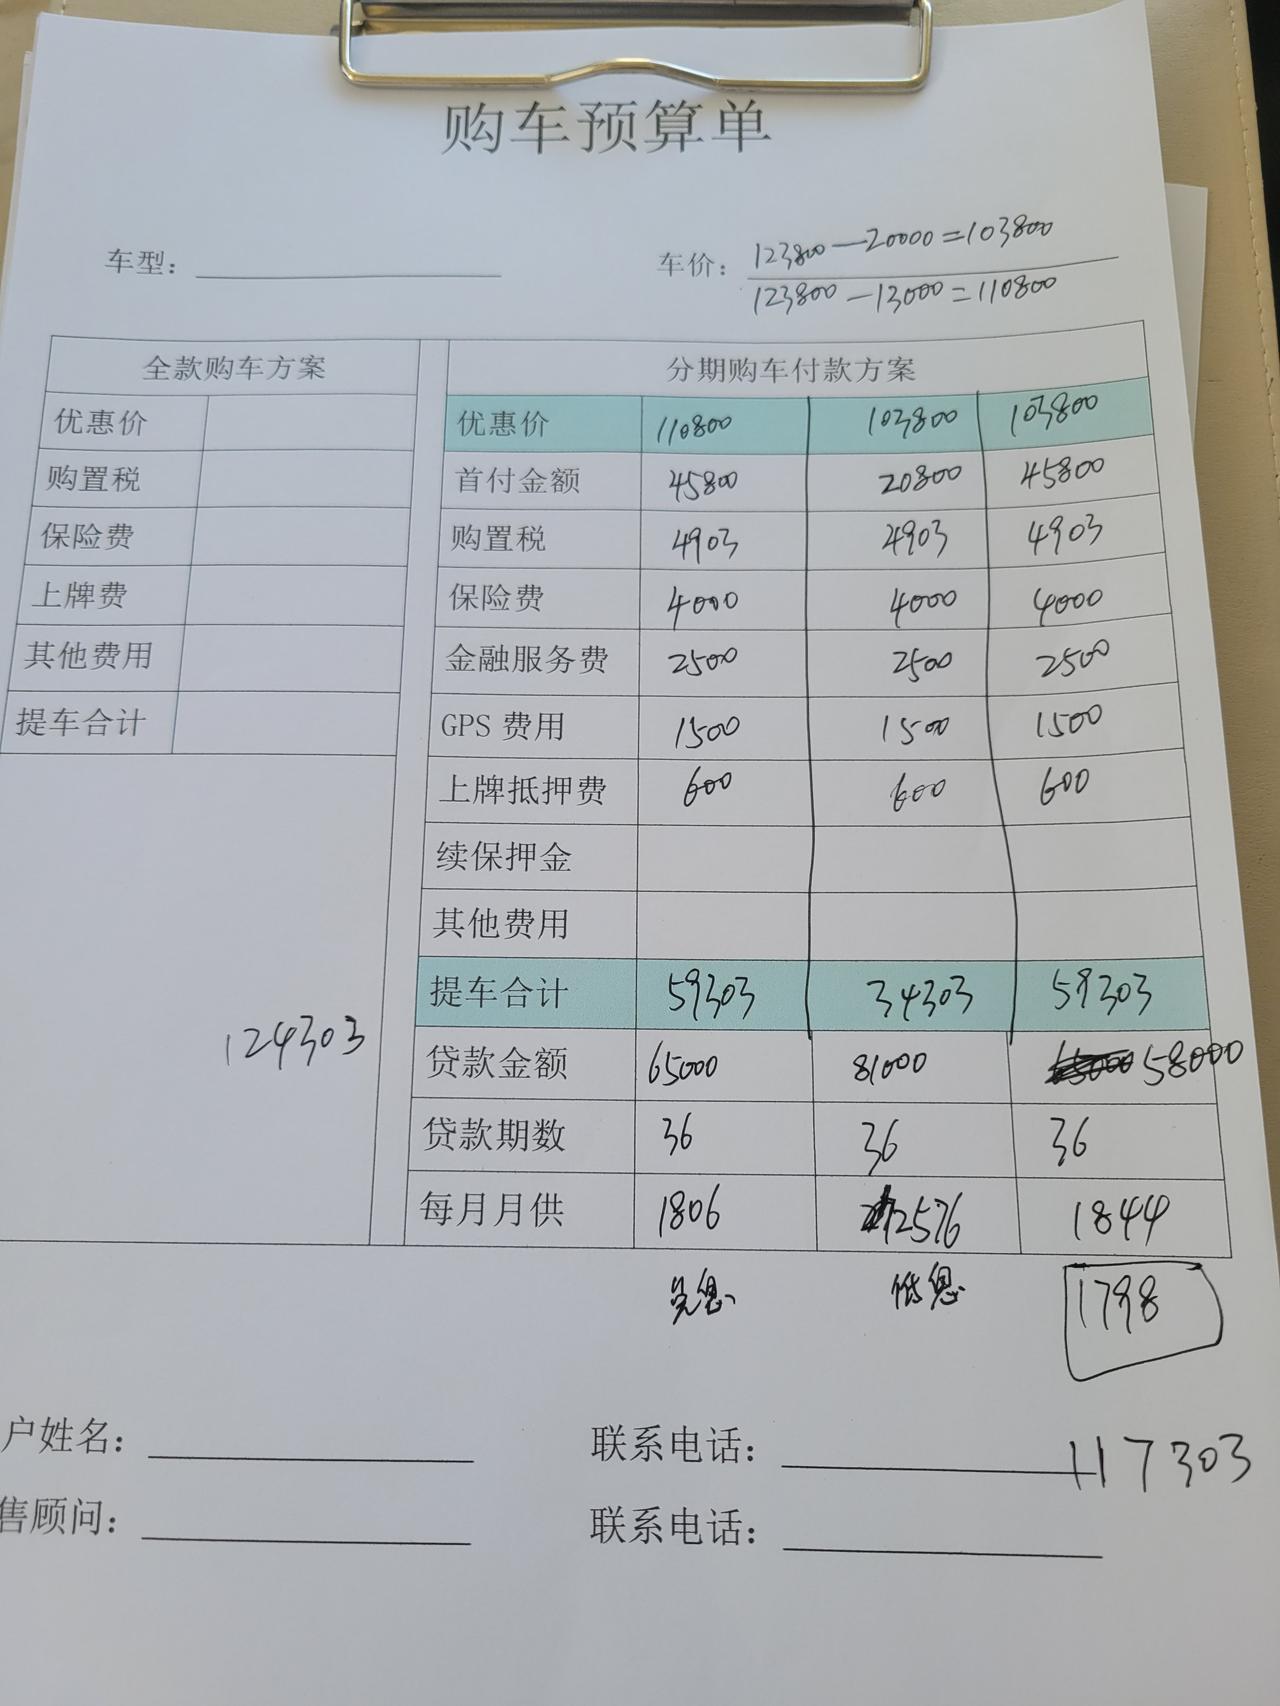 购车预算单
车型：
车价：123800—20000=103800
123800—13000=110800
全款购车方案
优惠价
购置税
保险费
上牌费
其他费用
提车合计
124303
分期购车付款方案
优惠价 110800 103800 103800
首付金额 45800 20800 45800
购置税 4903 4903 4903
保险费 4000 4000 4000
金融服务费 2500 2500 2500
GPS 费用 1500 1500 1500
上牌抵押费 600 600 600
续保押金
其他费用
提车合计 59303 34303 59303
贷款金额 65000 81000 58000
贷款期数 36 36 36
每月月供 1806 2576 1844
免息 低息 1798
户姓名：
联系电话：
117303
售顾问：
联系电话：